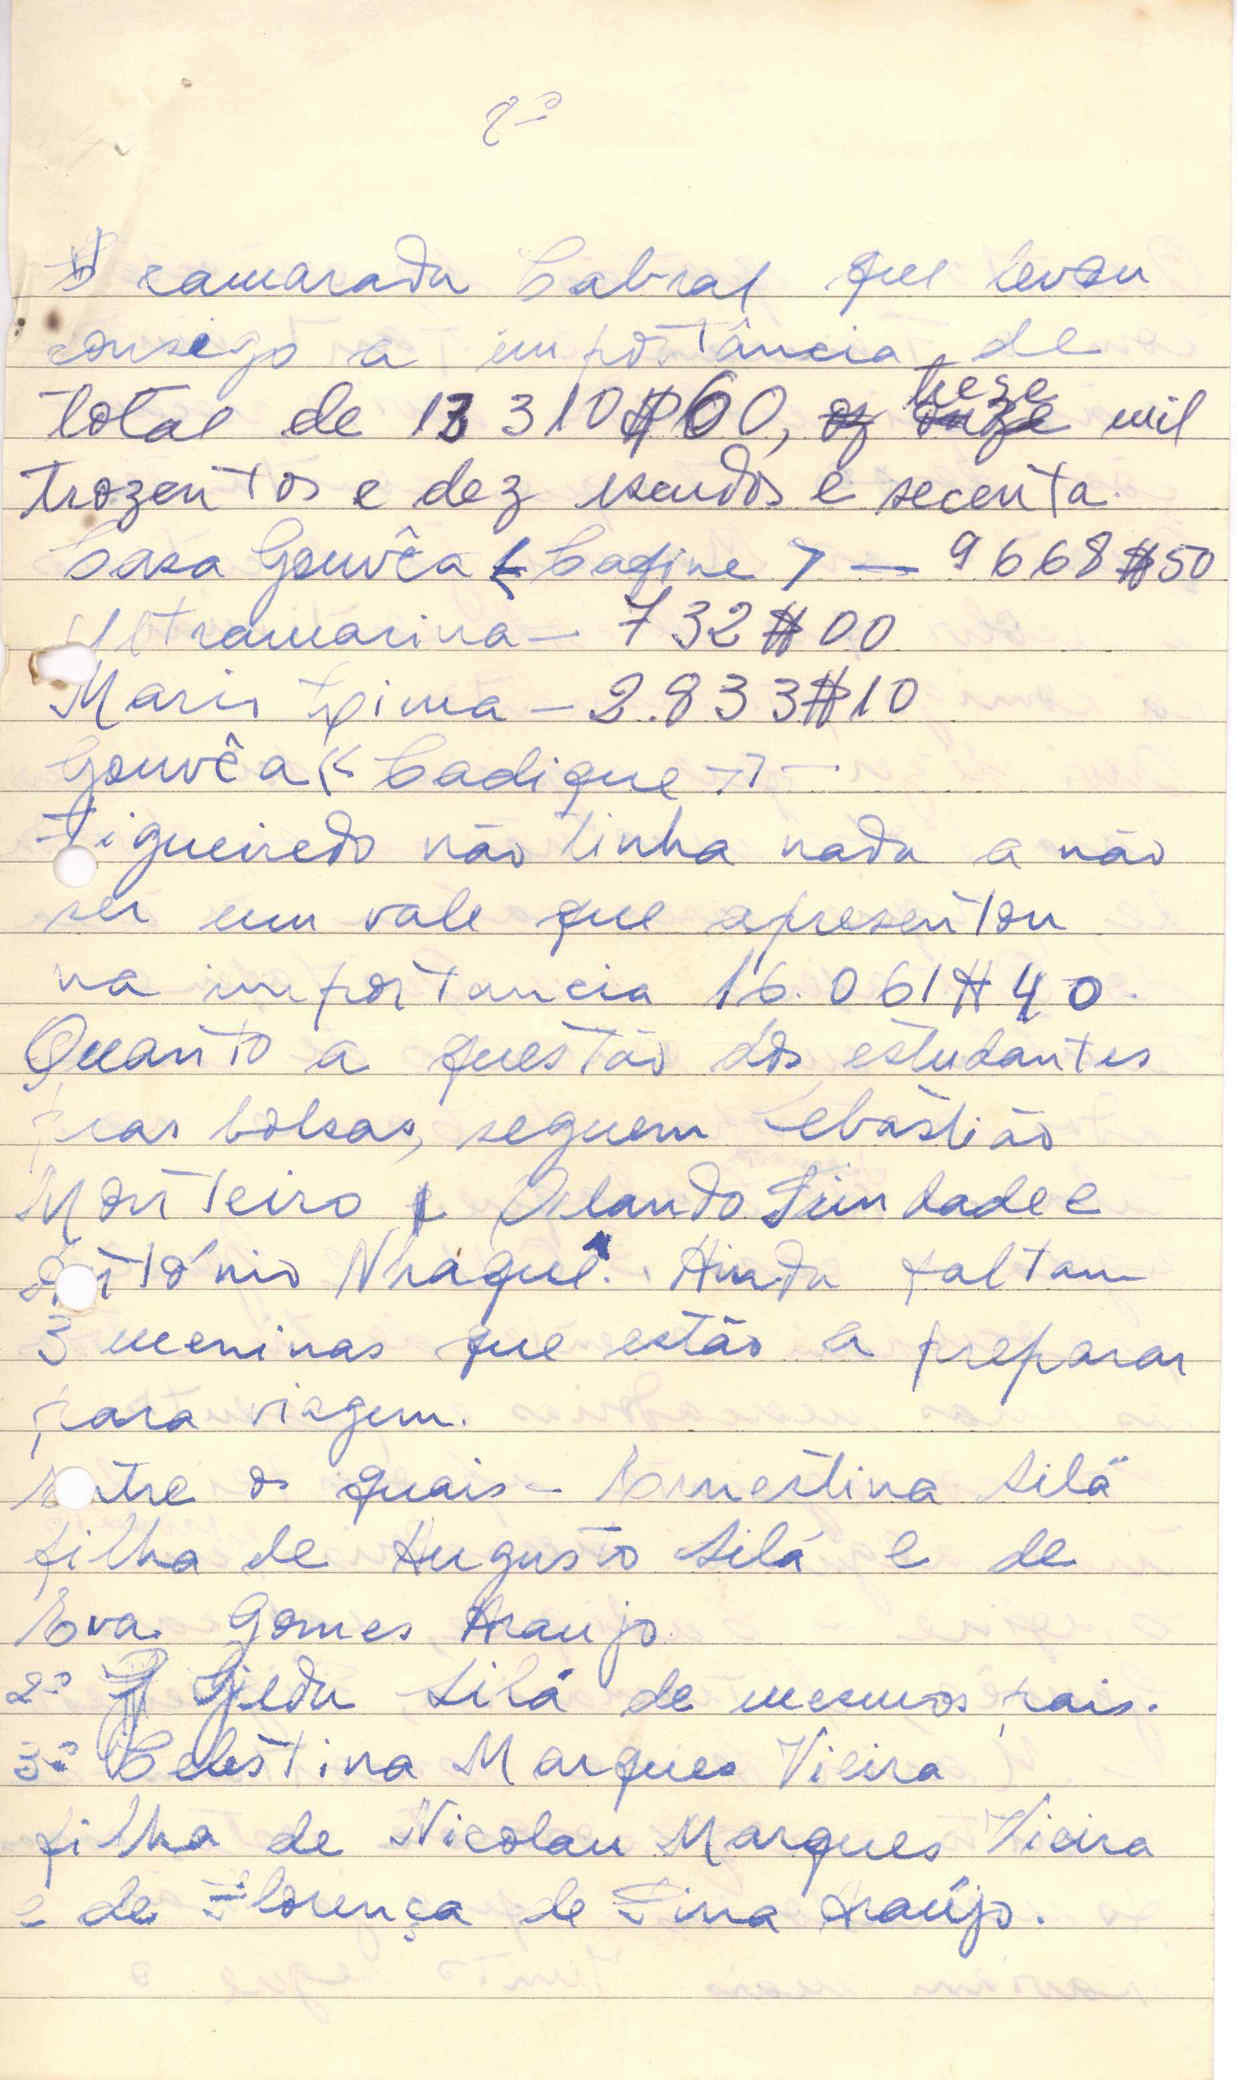 2º
O camarada Cabral que levou
consigo a importância de
total de 13 310$60, treze mil
trozentos e dez escudos e secenta
Casa Gouvêa < Cafine > — 9668$50
Ultramarina — 732$00
Mario Lima — 2.833$10
Gouvêa << Cadique >> —
Figueiredo não tinha nada a não
ser um vale que apresentou
na importancia 16.061$40.
Quanto a questão dos estudantes
pras bolsas, seguem Sebastião
Monteiro Orlando Trindade e
António Nhaqué. Ainda faltam
3 meninas que estão a preparar
para viagem.
Entre os quais – Ernestina Silá
filha de Augusto Silá e de
Eva Gomes Araujo
2º Djedu Silá de mesmos pais.
3º Celestina Marques Vieira
filha de Nicolau Marques Vieira
e de Florença de Pina Araújo.